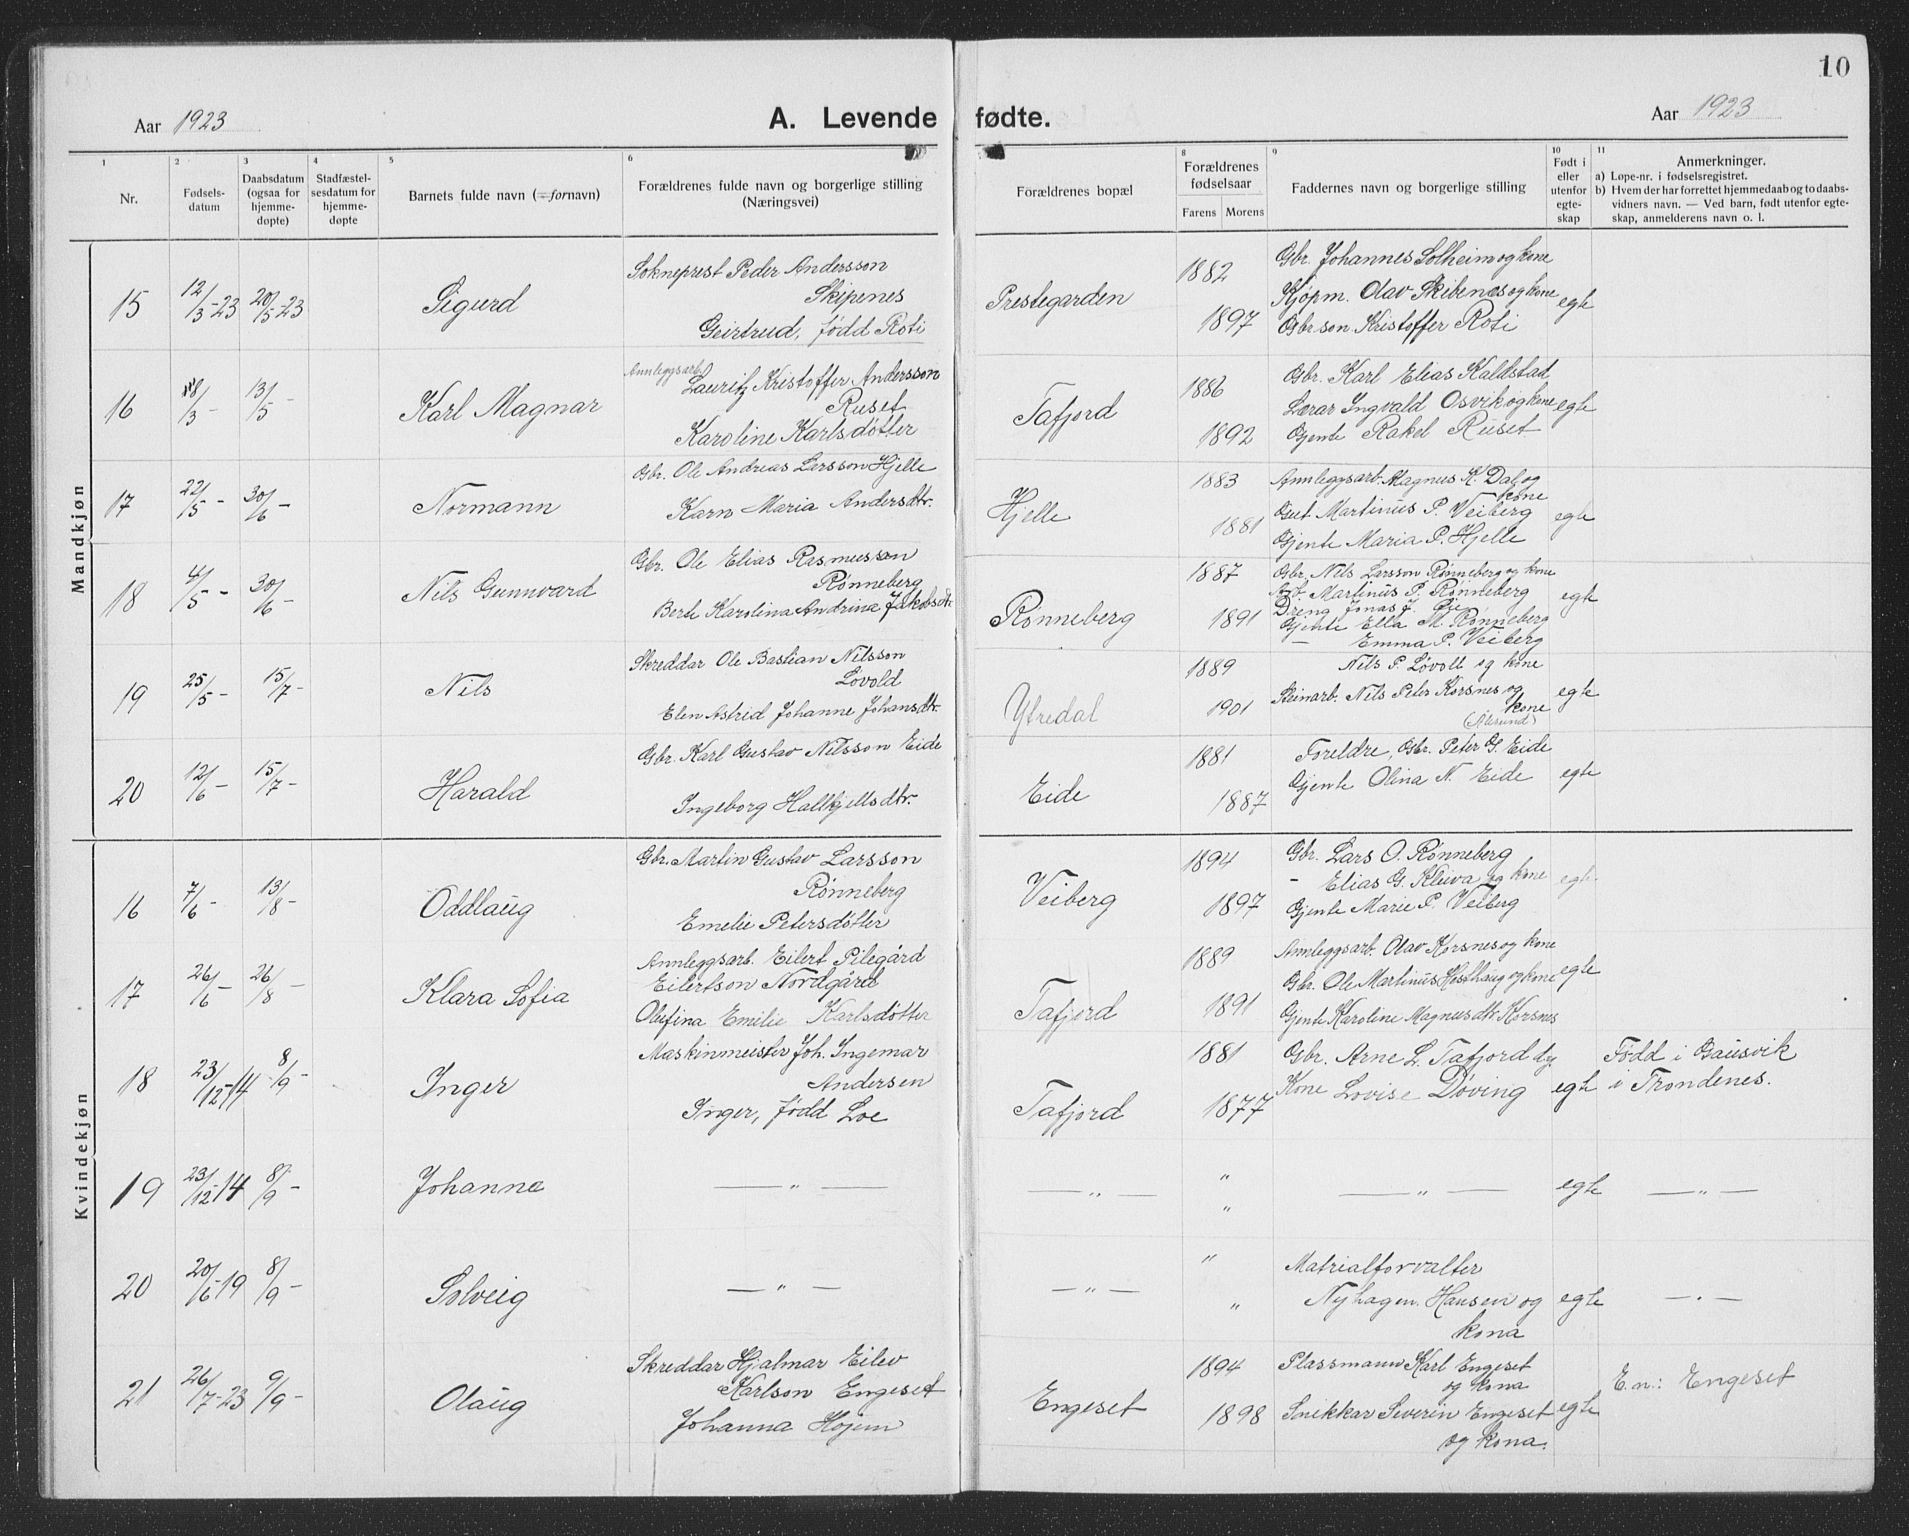 10
Aar 1923
A. Levende fødte.
Aar 1923
1 Nr.
2 Fødsels-datum
3 Daabsdatum (ogsaa for hjemme-døpte)
4 Stadfæstel-sesdatum for hjemme-døpte
5 Barnets fulde navn (=fornavn)
6 Forældrenes fulde navn og borgerlige stilling (Næringsvei)
Forældrenes bopæl
8 Forældrenes fødselsaar
Farens Morens
9 Faddernes navn og borgerlige stilling
10 Født i eller utenfor egte-skap
11 Anmerkninger.
a) Løpe-nr. i fødselsregistret.
b) Hvem der har forrettet hjemmedaab og to daabs-vidners navn. — Ved barn, født utenfor egte-skap, anmelderens navn o. l.
Mandkjøn
15 12/3-23 20/5-23 Sigurd
Sokneprest Peder Andersson
Skipenes
Geirtrud, fødd Roti
Prestegarden
1882
1897
Gbr. Johannes Solheim og kone
Kjøpm. Olav Skibenes og kone
Gbr.son Kristoffer Roti
egte
16 18/3 - 13/5 - Karl Magnar
Annleggsarb.
Lauritz Kristoffer Andersson
Ruset
Karoline Karlsdøtter
Tafjord
1886
1892
Gbr. Karl Elias Kaldstad
Lærar Ingvald Osvik og kone
Gjente Rakel Ruset
egte
17 22/5 - 30/6 - Normann
Gbr. Ole Andreas Larsson Hjelle
Karn Maria Andersdtr.
Hjelle
1883
1881
Annleggsarb. Magnus K. Dal og
kone
Gut Martinus P. Veiberg
Gjente Maria P. Hjelle
egte
18 4/5 - 30/6 - Nils Gunnvard
Gbr. Ole Elias Rasmusson
Rønneberg
Berte Karolina Andrina Jakobsdtr.
Rønneberg
1887
1891
Gbr. Nils Larsson Rønneberg og kone
Martinus P. Rønneberg
Dreng Jonas J.
Gjente Ella M. Rønneberg
— Emma P. Veiberg
egte
19 25/5 - 15/7 - Nils
Skreddar Ole Bastian Nilsson
Løvold
Elen Astrid Johanne Johansdtr.
Ytredal
1889
1901
Nils P. Løvoll og kone
Steinarb. Nils Peter Korsnes og
kone
(Ålesund)
egte
20 12/6 - 15/7 - Harald
Gbr. Karl Gustav Nilsson Eide
Ingeborg Hallkjellsdtr.
Eide
1881
1887
Foreldre, Gbr. Peter G. Eide
Gjente Olina N. Eide
egte
Kvindekjøn
16 7/6 - 13/8 - Oddlaug
Gbr. Martin Gustav Larsson
Rønneberg
Emelie Petersdøtter
Veiberg
1894
1897
Gbr. Lars O. Rønneberg
- Elias G. Kleiva og kone
Gjente Marie P. Veiberg
egte
17 26/6 - 26/8 - Klara Sofia
Annleggsarb. Eilert Pilegård
Eilertson Nordgård
Olufina Emilie Karlsdøtter
Tafjord
1889
1891
Annleggsarb. Olav Korsnes og kone
Gbr. Ole Martinus Hesthaug og kone
Gjente Karoline Magnusdtr. Korsnes
egte
18 23/12-14 8/9 - Inger
Maskinmeister Joh. Ingemar
Andersen
Inger, fødd Loe
Tafjord
1881
1877
Gbr. Arne L. Tafjord og
Kone Lovise Døving
egte
Fødd i Gausvik
i Trondenes.
19 23/12-14 8/9 - Johanne
— „ —
— „ —
„
„
— „ —
egte
— „ —
20 20/6-19 8/9 - Solveig
— „ —
— „ —
„
„
Matrialforvalter
Nyhagen. Hansen og
kona
egte
— „ —
21 26/7-23 9/9 - Olaug
Skreddar Hjalmar Eilev
Karlson Engeset
Johanna Hojem
Engeset
1894
1898
Plassmann Karl Engeset
og kona
Snikkar Severin Engeset
og kona.
egte
E.n.: Engeset